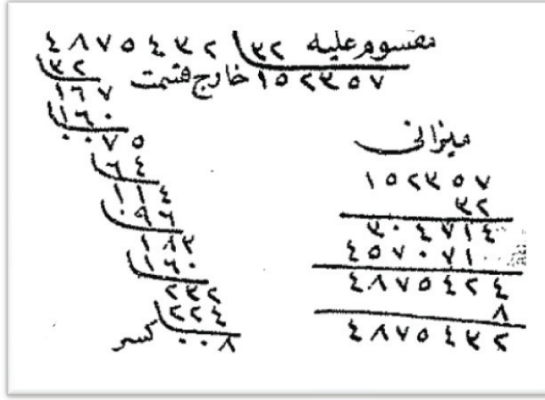 ٤٨٧٥٤٣٢ ٣٢ مقسوم عليه
٣٢ خارج قسمت ١٥٢٣٥٧
١٦٧
١٦٠
٠٠٧٥
٦٤
١١٤
٠٩٦
١٨٣
١٦٠
٢٣٢
٢٢٤
٠٠٨ كسر
ميزانى
١٥٢٣٥٧
٣٢
٣٠٤٧١٤
٤٥٧٠٧١
٤٨٧٥٤٢٤
٨
٤٨٧٥٤٣٢